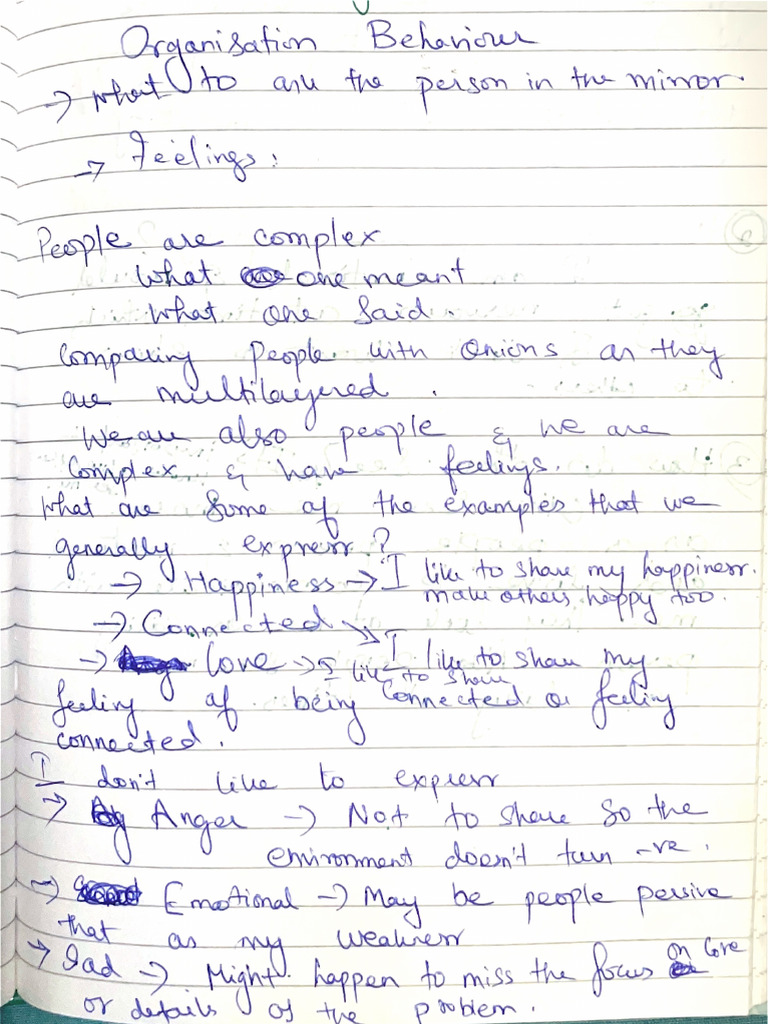 Organisation Behaviour
→ what to ask the person in the mirror.
→ Feelings:
People are complex
What one meant
What one said.
Comparing people with onions as they
are multilayered.
We are also people & we are
complex & have feelings.
What are some of the examples that we
generally express?
→ Happiness → I like to share my happiness.
make others happy too.
→ Connected → I like to share my
→ Love → I like to share
feeling of being connected or feeling
connected.
I don't like to express
→ Anger → Not to share so the
environment doesn't turn -ve.
→ Emotional → May be people persive
that as my weakness
→ Sad → Might happen to miss the focus on core
or details of the problem.